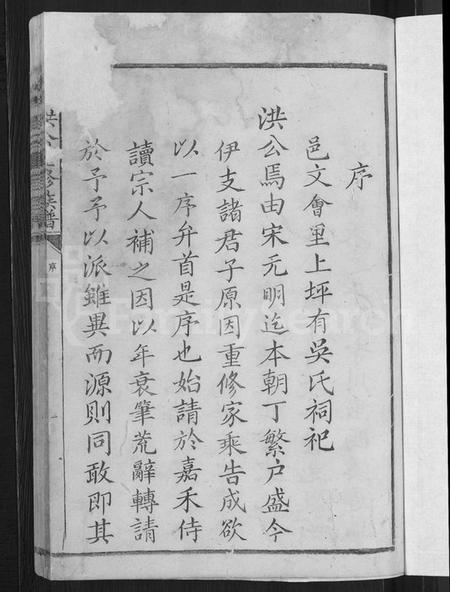 序
邑文會里上坪有吳氏祠祀
洪公焉由宋元明迄本朝丁繁户盛今
伊支諸君子原因重修家乘告成欲
以一序弁首是序也始請於嘉禾侍
讀宗人補之因以年衰筆荒辭轉請
於予予以派雖異而源則同敢即其
洪公 修族譜
序
一